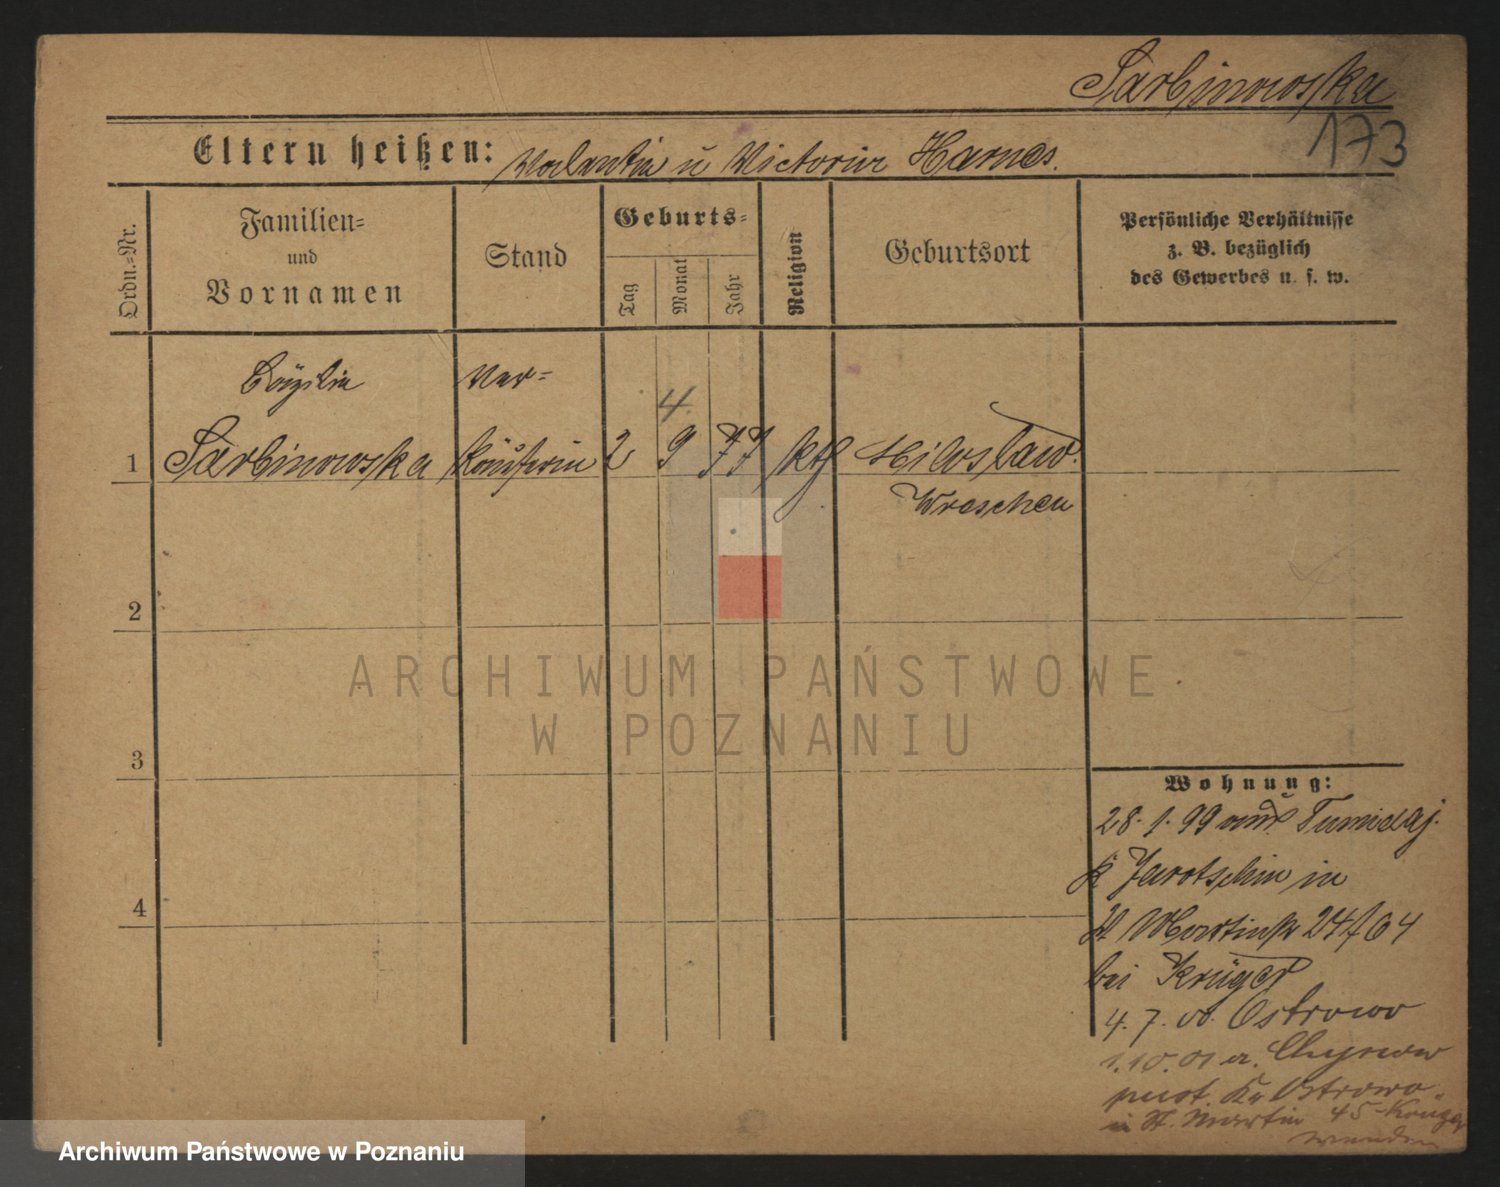 Sarbinowska
173
Eltern heißen: Valentin u Victoria Harnes.
Ordn.-Nr.
Familien- und Vornamen
Stand
Geburts-
Tag
Monat
Jahr
Religion
Geburtsort
Persönliche Verhältnisse
z. B. bezüglich
des Gewerbes u. s. w.
Cäzilia Ver-
4.
1 Sarbinowska käuferin 2 9 77 kth Miloslaw.
Wreschen
2
3
4
Wohnung:
28. 1. 99 aus Tumidaj.
K Jarotschin in
St Martinstr 24/64
bei Krüger
4. 7. 00. Ostrowo
1. 10. 01 a. Chynow
pust. Kr Ostrowo
in St. Martin 45 Krüger
ARCHIWUM PAŃSTWOWE
W POZNANIU
Archiwum Państwowe w Poznaniu